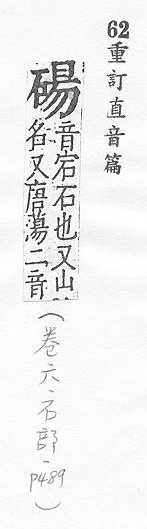 62重訂直音篇
碭
音宕石也又山
名又唐蕩二音
(卷六·石部·P489)